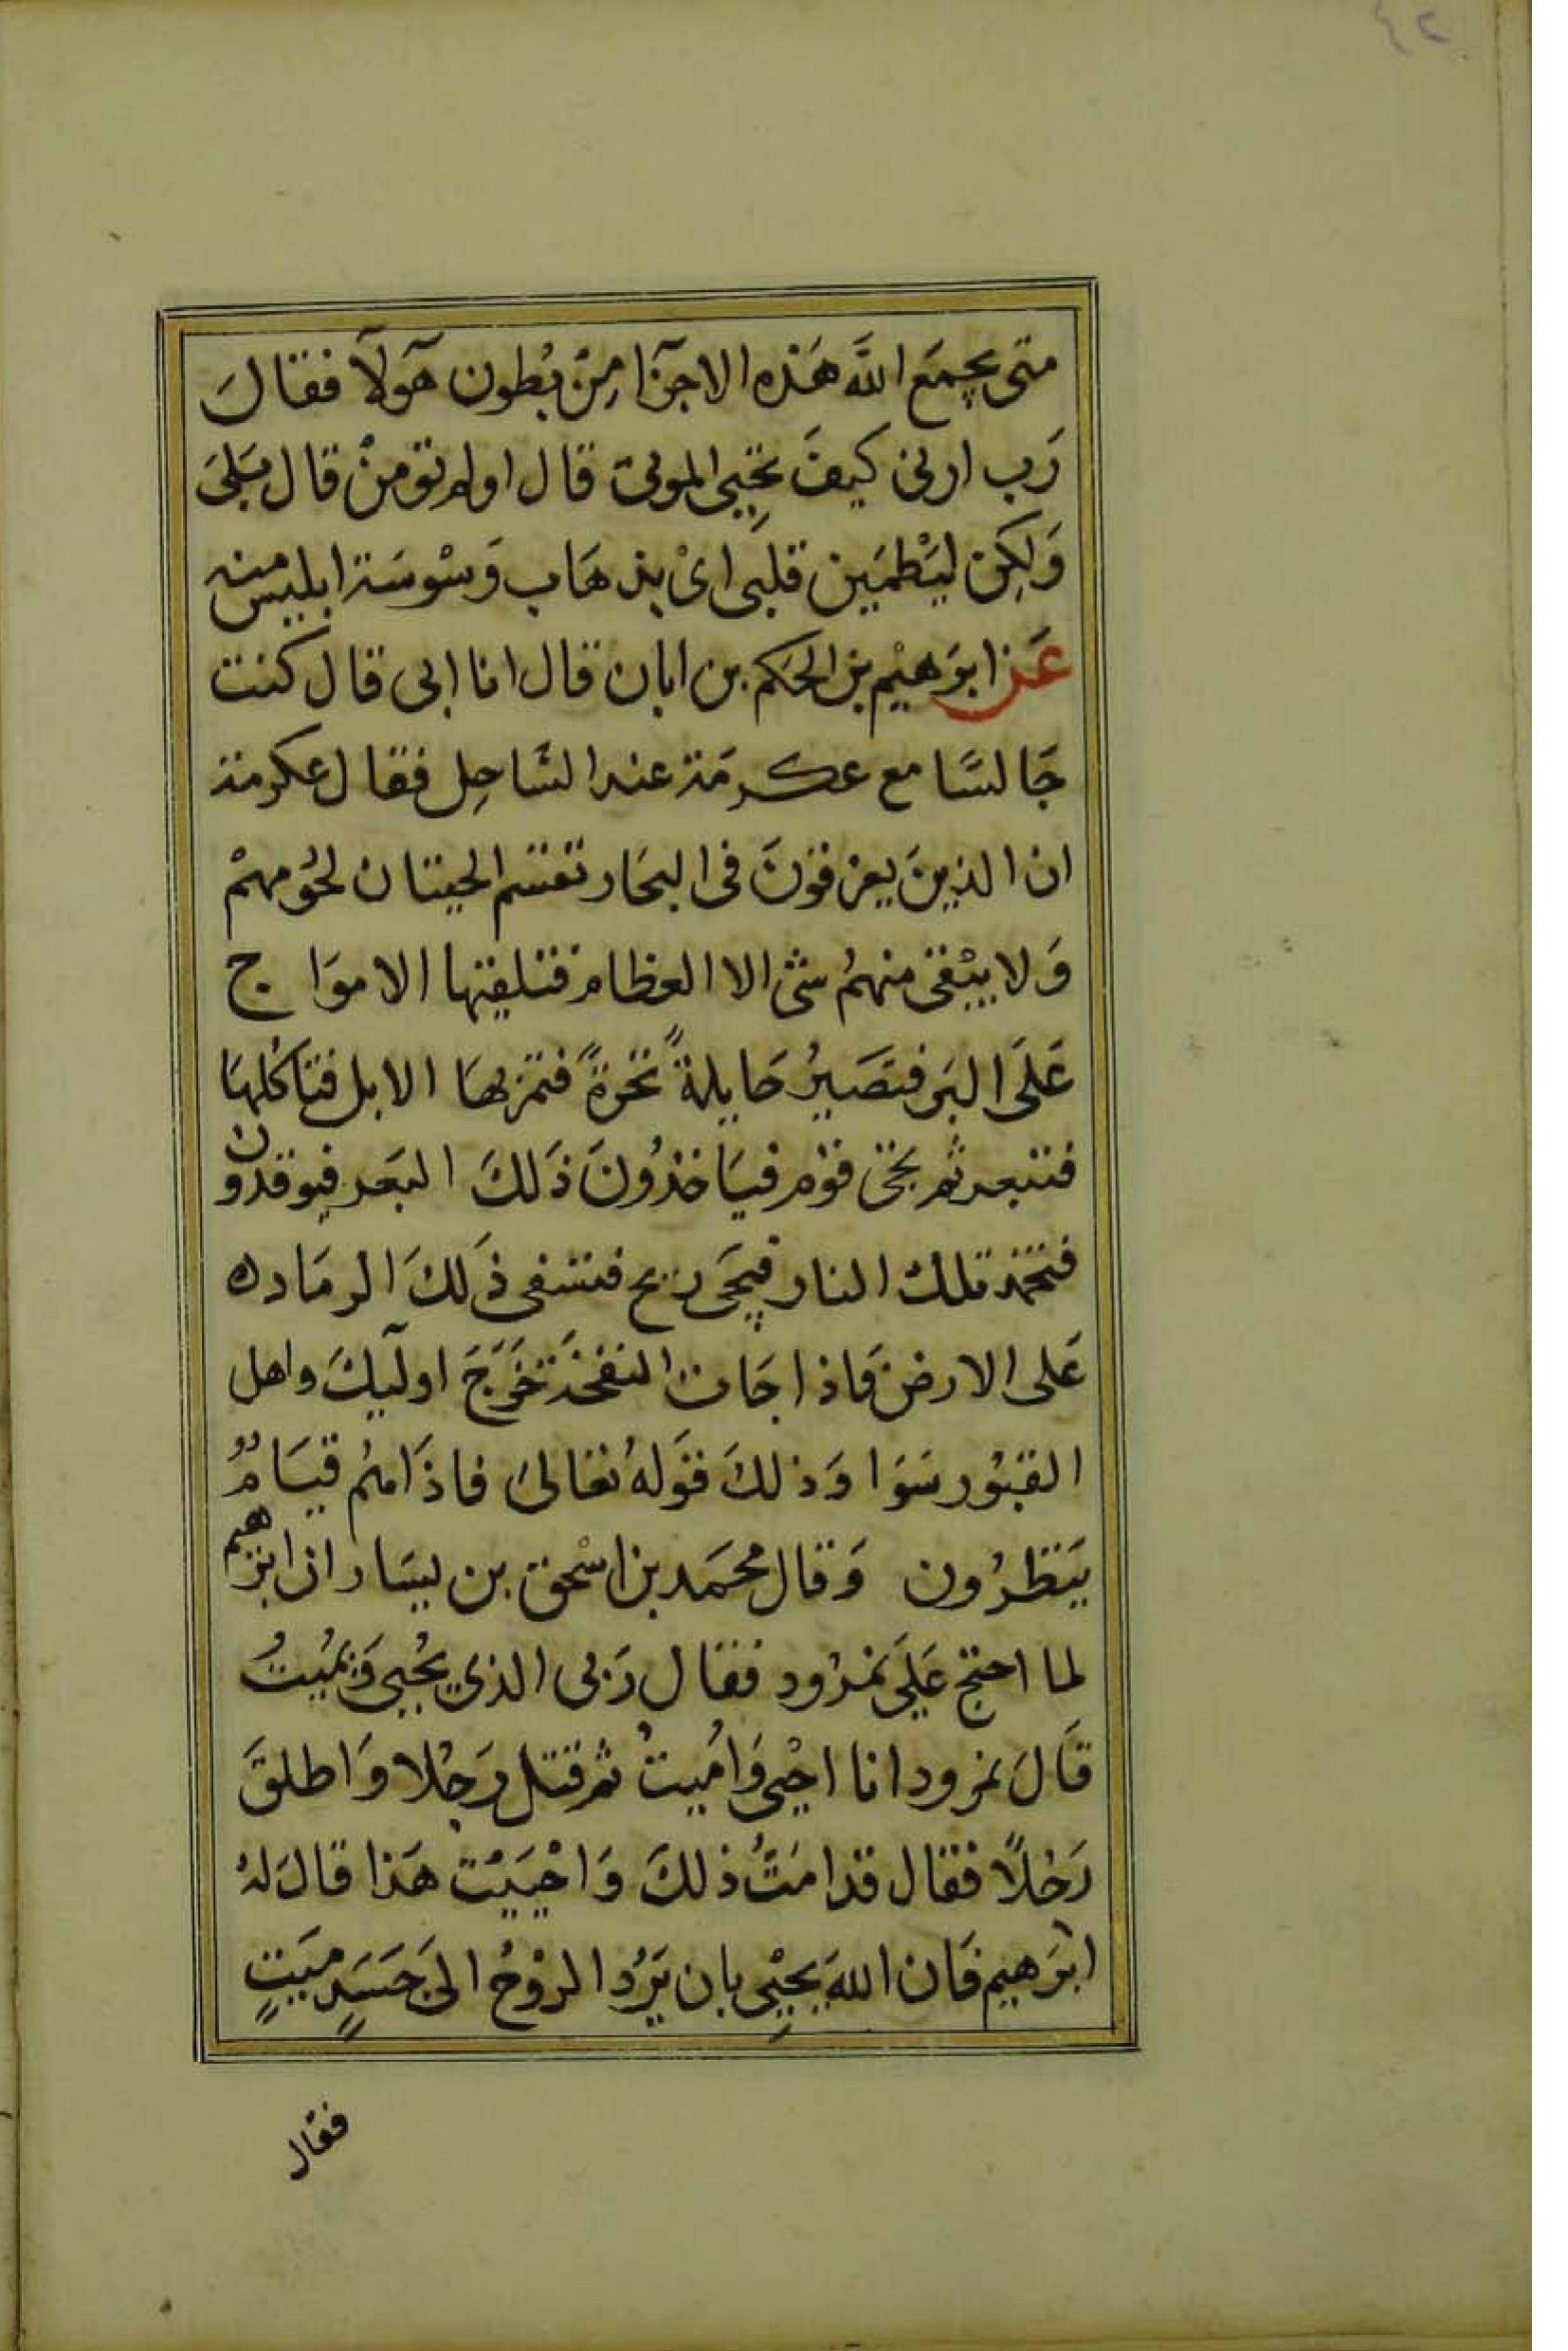 ٤٢
متى يجمَع اللَّه هَذه الاجزآ مِنْ بُطون هَولآ فقالَ
رَب ارنى كيفَ تحِيى الموتى قال اولم تومنْ قال بَلىَ
وَلكِن ليَطْمَين قلبى اىْ بذهَاب وَسْوسَة ابليس منه
عَن ابرَهيْم بن الحكَم بن ابان قال انا ابى قال كنت
جَالسًا مع عكرمَة عند السَّاحِل فقال عكرمة
ان الذينَ يغرقونَ فى البحَار تقتسم الحيتان لحُومهمْ
وَلا يبْقى منهمُ شئ الا العظام فتلقيها الامَواج
عَلَى البَر فتصَيرُ حَايلةً نخرةً فتمر بهَا الابل فتاكُلهَا
فتبعر ثم يجئ قوْم فيَاخذُونَ ذَلكَ البَعر فيوقدون
فتخمد تلك النار فيَجى ريح فتسفى ذَلكَ الرمَادَ
عَلى الارض فَاذا جَات النفخَة خَرَجَ اولَيكَ واهل
القبُور سَوَا وَذلكَ قوَلهُ تعَالىَ فاذَا همُ قيَامٌ
يَنظرُون وَقال محمَد بن اسْحق بن يسَار ان ابرهيم
لما احتج عَلىَ نمرُود فقال رَبى الذي يُحيى وَيمُيتُ
قَالَ نمرود انا احْيى وَامُيتُ ثم قتل رَجُلا وَاطلقَ
رَجُلاً فقال قد امَتُّ ذلكَ وَاحْيَيْت هَذا قالَ لهُ
ابرَهيم فَان اللهَ يحيْى بان يَرُد الروْحُ الىَ جَسَدٍ مَيتٍ
فقال